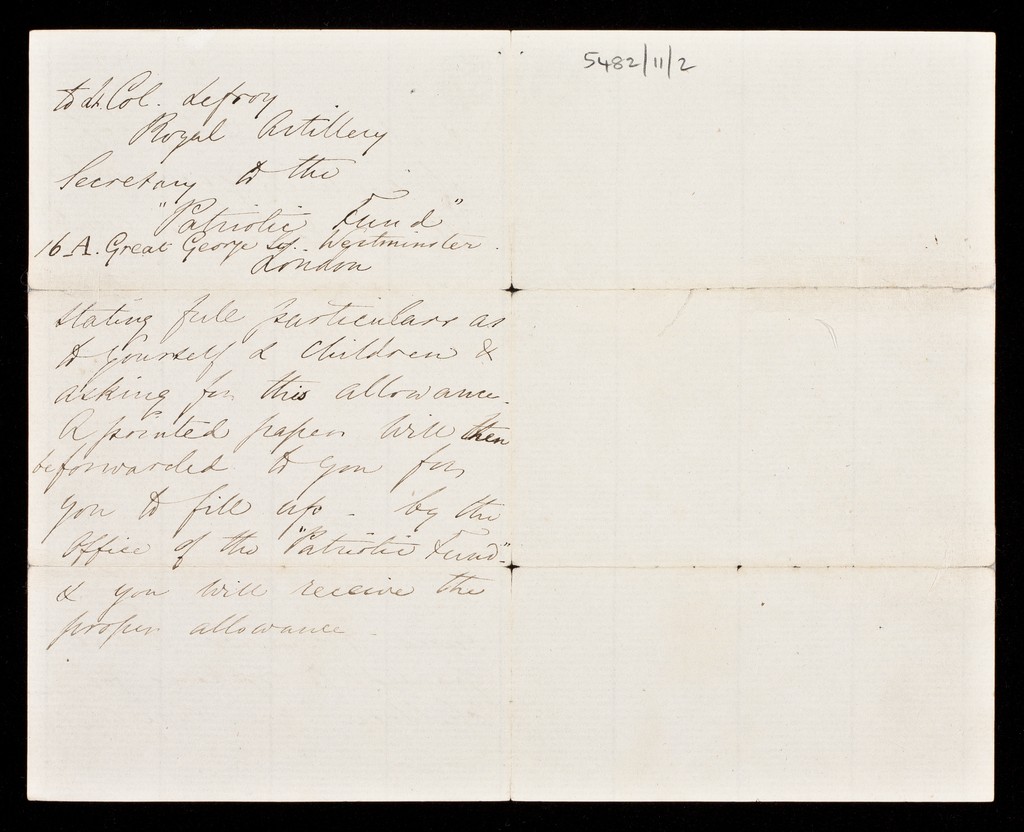 to Lt. Col. Lefroy
Royal Artillery
Secretary to the
"Patriotic Fund"
16 A. Great George St. Westminster.
London
stating full particulars as
to yourself & children &
asking for this allowance.
A printed paper will then
be forwarded to you for
you to fill up - by the
Office of the "Patriotic Fund"
& you will receive the
proper allowance
5482/11/2